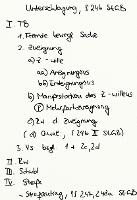 Unterschlagung, § 246 StGB
I. TB
1. Fremde bewegl. Sache
2. Zueignung
a) Z - wille
aa) Aneignungs
bb) Enteignungs
b) Manifestation des Z-willens
P Mehrfachzueignung
c) RW d Zueignung
(d) Qual., § 246 II StGB)
3. Vs bzgl. 1 + 2c, 2d
II. RW
III. Schuld
IV. Strafe
- Strafantrag, §§ 247, 248a StGB